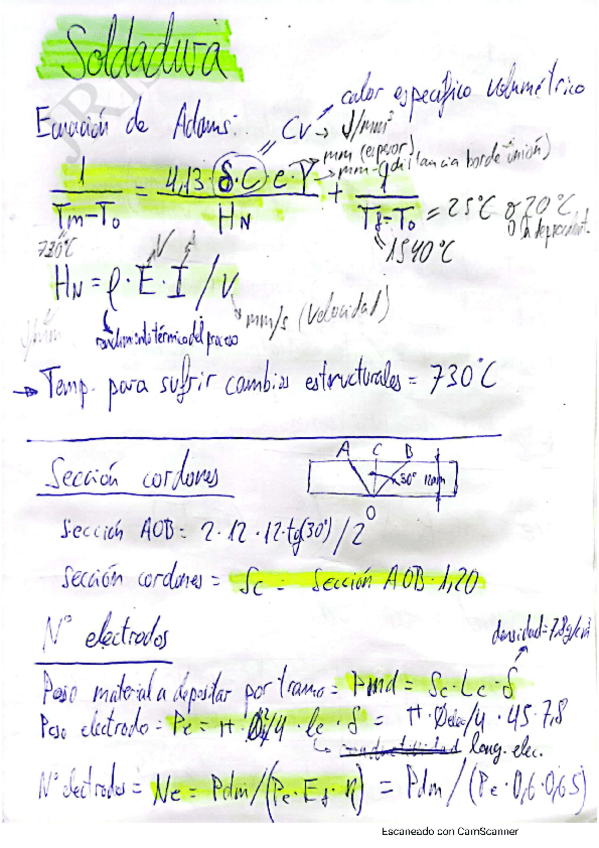 Soldadura
calor específico volumétrico
Ecuación de Adams: Cv → J/mm³
mm (espesor)
mm (distancia borde unión)
1/(Tm-To) = 4,13·(δ·C)·e·Y/HN + 1/(Tf-To) = 25°C o 20°C
730°C
1540°C
HN = ρ·E·I/v
V A
J/mm
rendimiento térmico del proceso
mm/s (velocidad)
→ Temp. para sufrir cambios estructurales = 730°C
Sección cordones
A C B
30° 12mm
O
Sección AOB = 2·12·12·tg(30°)/2
Sección cordones = Sc = Sección AOB·1,20
Nº electrodos
densidad=7,8g/cm³
Peso material a depositar por tramo = Pmd = Sc·Lc·δ
Peso electrodo = Pe = π·Ø²/4·le·δ = π·Øelec/4·45·7,8
long. elec.
Nº electrodos = Ne = Pdm/(Pe·Ef·η) = Pdm/(Pe·0,6·0,65)
Escaneado con CamScanner